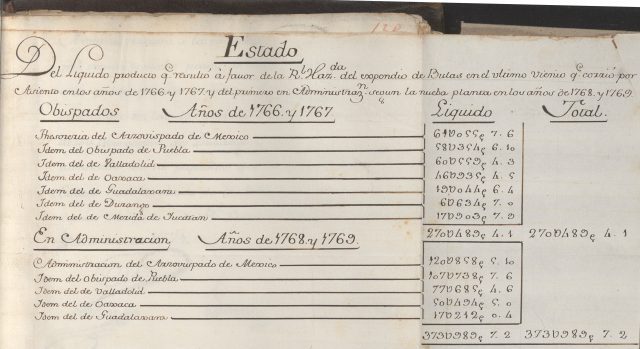 120
Estado
Del Liquido producto q.e resultó à favor de la R.l Haz.da del expendio de Bulas en el ultimo Vienio q.e corrió por
Asiento en los años de 1766. y 1767. y del primero en Administraz.n segun la nueba planta en los años de 1768. y 1769.
Obispados Años de 1766. y 1767 Liquido Total.
Thesoreria del Arzovispado de Mexico 61U055p 7. 6
Idem del Obispado de Puebla 58U354p 6. 10
Idem del de Valladolid 60U559p 4. 3
Idem del de Oaxaca 46U935p 4. 5
Idem del de Guadalaxara 19U044p 6. 4
Idem del de Durango 6U634p 7. 0
Idem del de Merida de Yucatan 17U903p 7. 9
270U489p 4. 1 270U489p 4. 1
En Administracion Años de 1768. y 1769.
Administracion del Arzovispado de Mexico 120U858p 5. 10
Idem del Obispado de Puebla 107U738p 7. 6
Idem del de Valladolid 77U685p 4. 6
Idem del de Oaxaca 50U494p 5. 0
Idem del de Guadalaxara 17U212p 0. 4
373U989p 7. 2 373U989p 7. 2